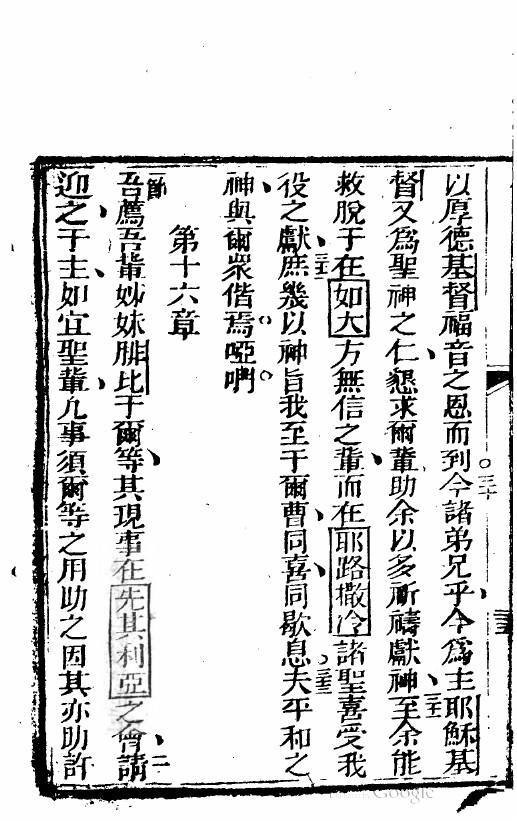 以厚德基督福音之恩而到○三十今諸弟兄乎今爲主耶穌基
督又爲聖神之仁懇求爾輩助余以多祈禱獻神三十一至余能
救脫于在如大方無信之輩而在耶路撒冷諸聖喜受我
役之獻三十二庶幾以神旨我至于爾曹同喜同歇息○三十三夫平和之
神與爾衆偕焉○啞呬○
第十六章
一節吾薦吾輩妙妹腓比于爾等其現事在先其利亞之會二請
迎之于主如宜聖輩凡事須爾等之用助之因其亦助許
Google